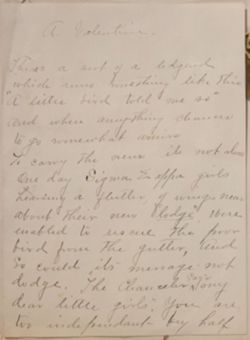 A Valentine.
There's a sort of a legend
which runs something like this
"A little bird told me so"
and when anything chances
to go somewhat amiss
To carry the news its not slow
One day Sigma Kappa girls
Hearing a flutter of wings near
about their new lodge, were
enabled to rescue the poor
bird from the gutter, and
So could its message not
dodge. The Chancellor says
dear little girls; You are
too independant by half